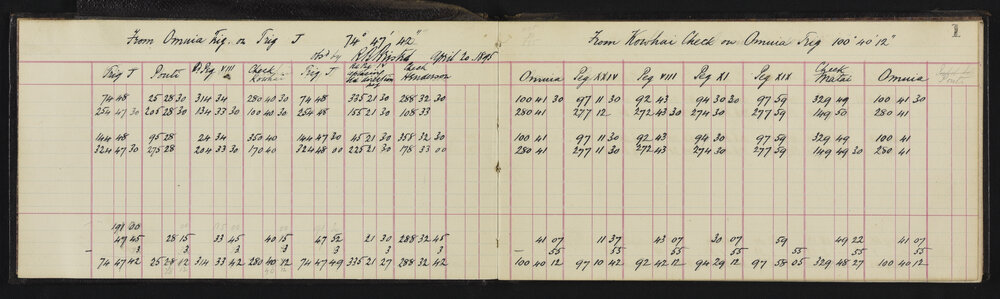 From Omuia Trig. on Trig J 74° 47' 42"
Obsd by April 20. 1895
Trig J Pouti Peg VIII Check Kowhai Trig J Check Henderson
74 48 25 28 30 314 34 280 40 30 74 48 335 21 30 288 32 30
254 47 30 205 28 30 134 33 30 100 40 30 254 48 155 21 30 108 33
144 48 95 28 24 34 350 40 144 47 30 45 21 30 358 32 30
324 47 30 275 28 204 33 30 170 40 324 48 00 225 21 30 178 33 00
191 30
47 45 28 15 33 45 40 15 47 52 21 30 288 32 45
– 3 3 3 3 3 3 3
74 47 42 25 28 12 314 33 42 280 40 12 74 47 49 335 21 27 288 32 42
From Kowhai Check on Omuia Trig 100° 40' 12"
1
Omuia Peg XXIV Peg VIII Peg XI Peg XIX Check Matai Omuia
100 41 30 97 11 30 92 43 94 30 30 97 59 329 49 100 41 30
280 41 277 12 272 43 30 274 30 277 59 149 50 280 41
100 41 97 11 30 92 43 94 30 97 59 329 49 100 41
280 41 277 11 30 272 43 274 30 277 59 149 49 30 280 41
41 07 11 37 43 07 30 07 59 49 22 41 07
– 55 55 55 55 55 55 55
100 40 12 97 10 42 92 42 12 94 29 12 97 58 05 329 48 27 100 40 12